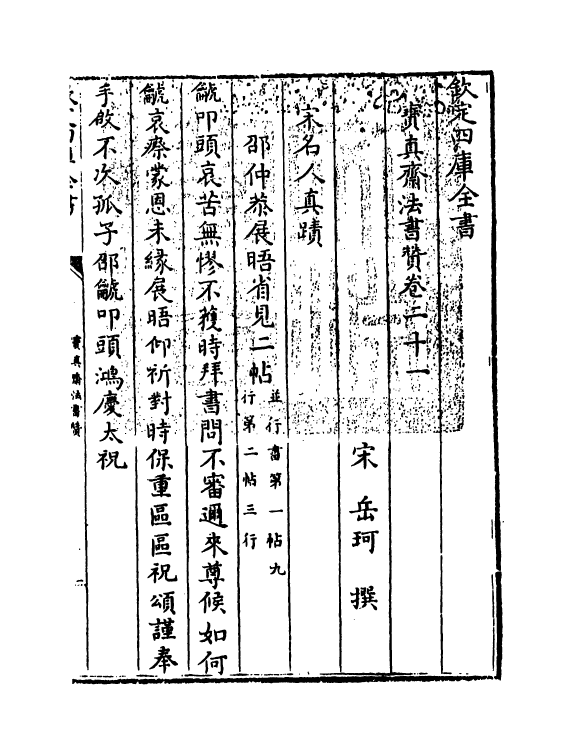 欽定四庫全書
寶真齋法書贊卷二十一
宋 岳珂 撰
宋名人真蹟
邵仲恭展晤省見二帖
並行書第一帖九
行第二帖三行
龥叩頭哀苦無憀不獲時拜書問不審邇來尊候如何
龥哀瘵蒙恩未緣展晤仰祈對時保重區區祝頌謹奉
手啟不次孤子邵龥叩頭鴻慶太祝
寶真齋法書贊